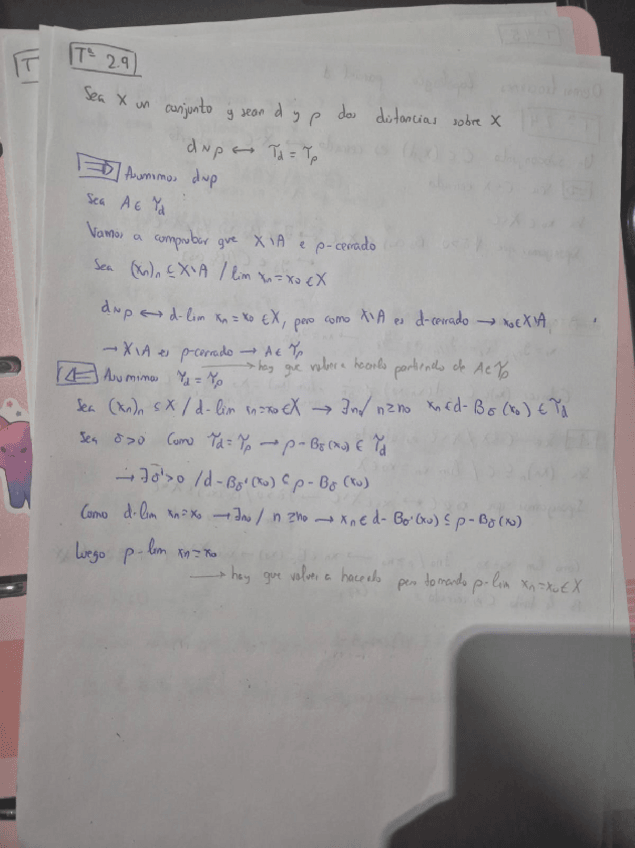 Tª 2.9
Sea X un conjunto y sean d y ρ dos distancias sobre X
d∼ρ ⟷ Τd = Τρ
⇒ Asumimos d∼ρ
Sea A ∈ Τd
Vamos a comprobar que X\A e ρ-cerrado
Sea (xn)n ⊆ X\A / lim xn = x0 ∈ X
d∼ρ ⟷ d-lim xn = x0 ∈ X, pero como X\A es d-cerrado → x0 ∈ X\A
→ X\A es ρ-cerrado → A ∈ Τρ
→ hay que volver a hacerlo partiendo de A ∈ Τρ
⇐ Asumimos Τd = Τρ
Sea (xn)n ⊆ X / d-lim xn = x0 ∈ X → ∃n0 / n ≥ n0 xn ∈ d-Bδ(x0) ∈ Τd
Sea δ > 0 Como Τd = Τρ → ρ-Bδ(x0) ∈ Τd
→ ∃δ' > 0 / d-Bδ'(x0) ⊆ ρ-Bδ(x0)
Como d-lim xn = x0 → ∃n0 / n ≥ n0 → xn ∈ d-Bδ'(x0) ⊆ ρ-Bδ(x0)
Luego ρ-lim xn = x0
→ hay que volver a hacerlo pero tomando ρ-lim xn = x0 ∈ X